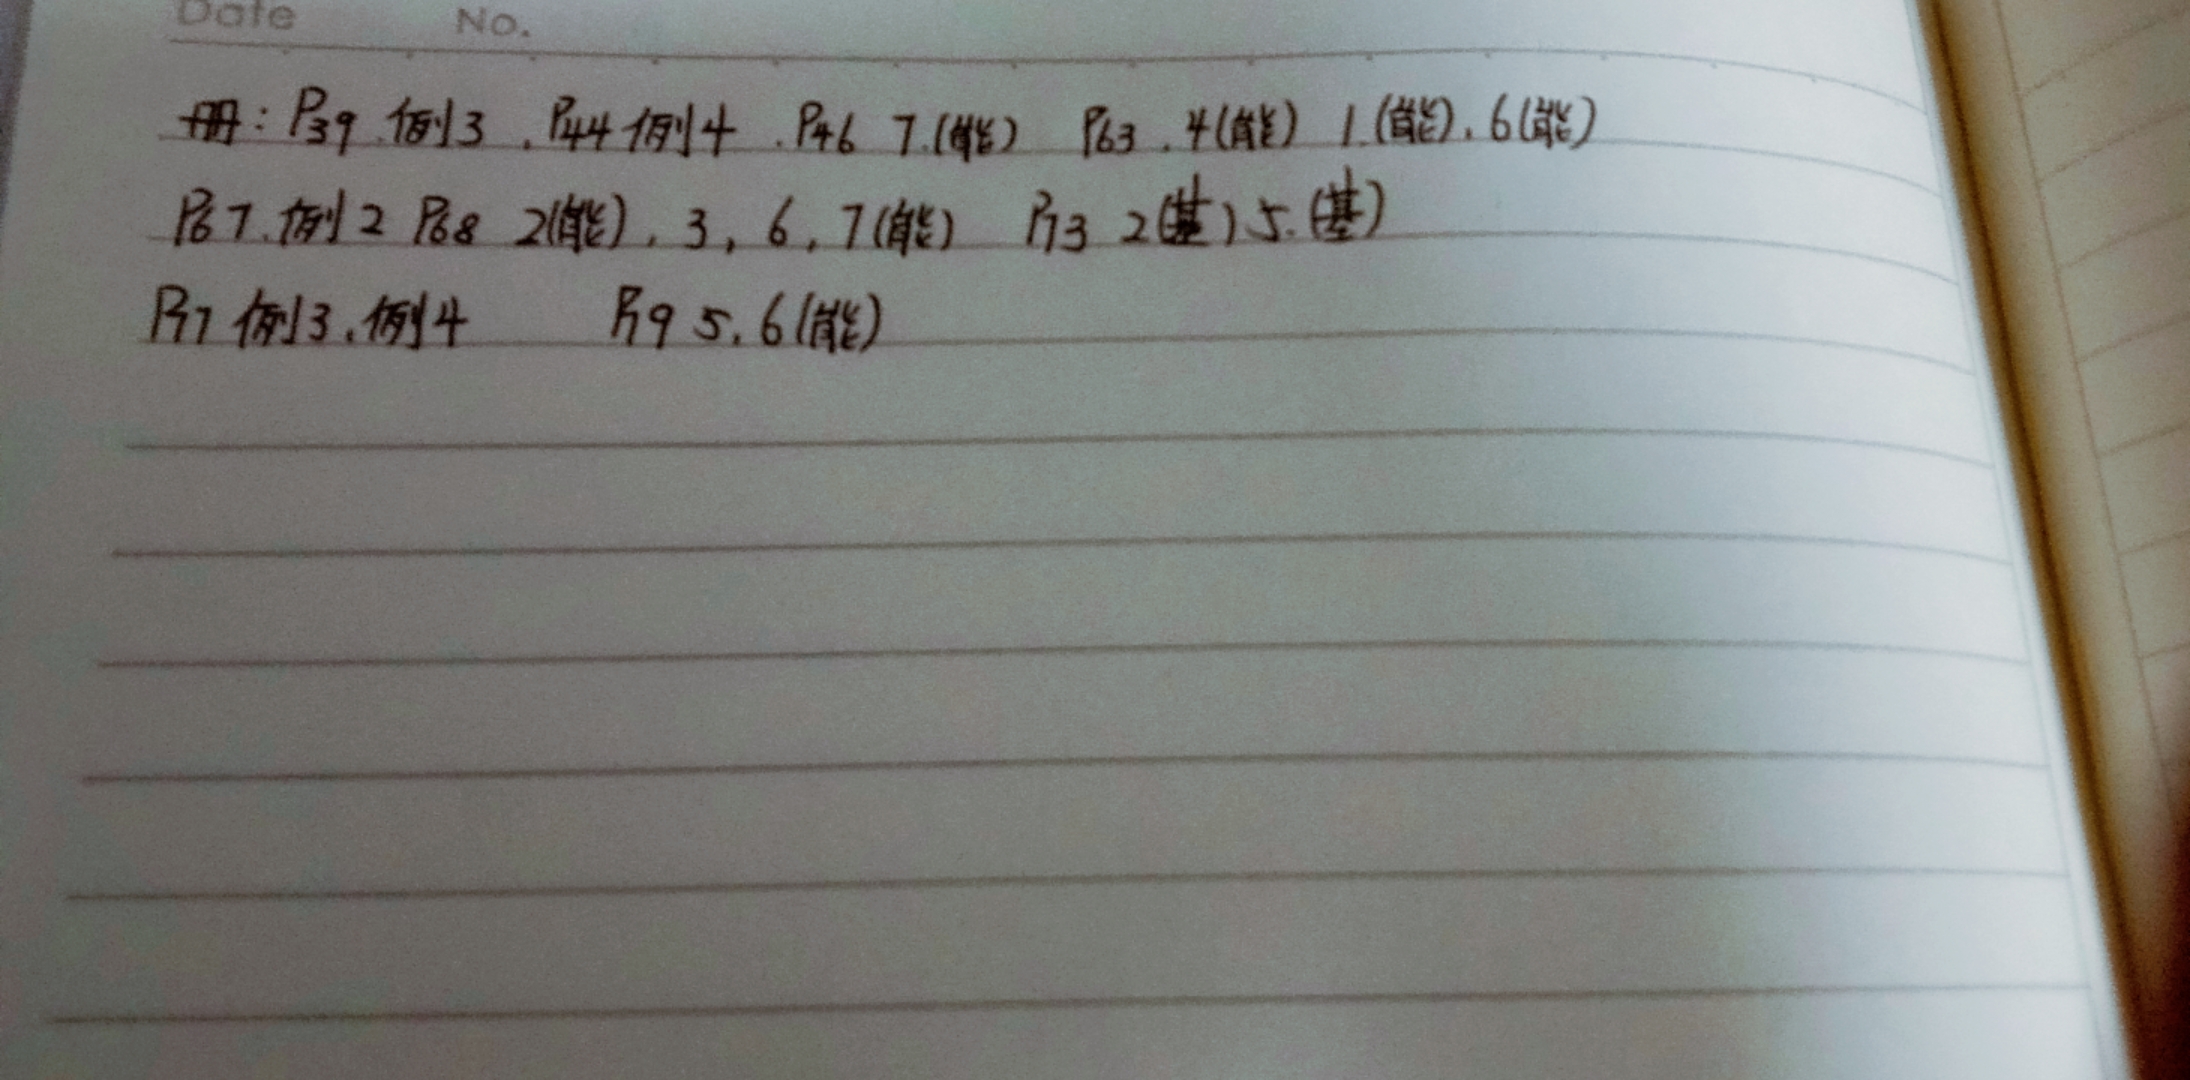 Date No.
册：P39 例3 . P44 例4 . P46 7.(能) P63 . 4(能) 1.(能). 6(能)
P67. 例2 P68 2(能). 3, 6, 7(能) P73 2(基) 5.(基)
P77 例3. 例4 P79 5. 6(能)